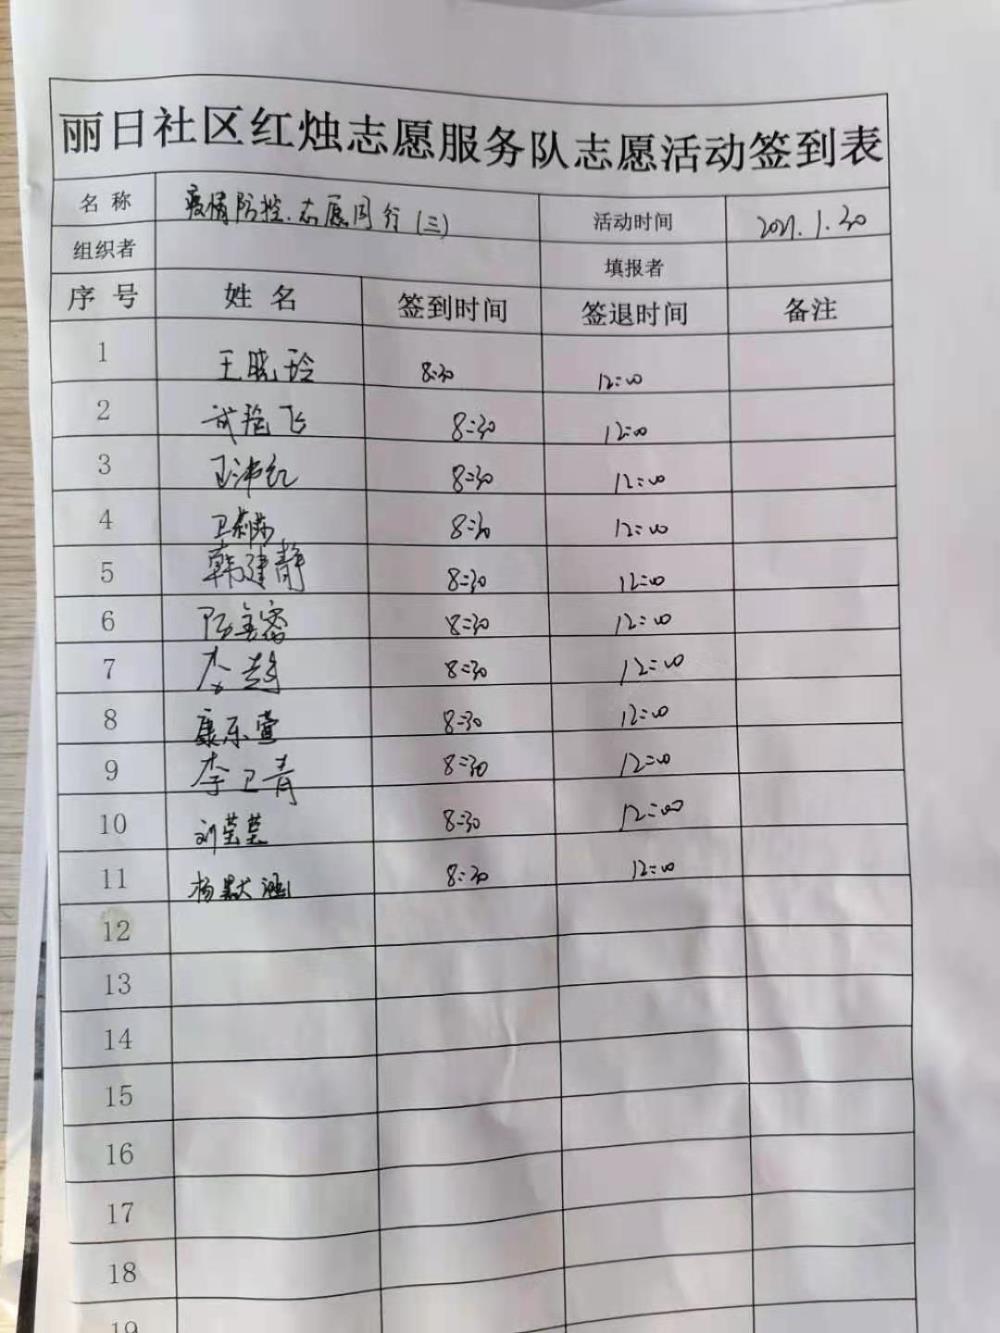 丽日社区红烛志愿服务队志愿活动签到表
名 称 疫情防控.志愿同行(三) 活动时间 2021.1.30
组织者 填报者
序 号 姓 名 签到时间 签退时间 备注
1 王晓玲 8:30 12:00
2 武艳飞 8:30 12:00
3 王沛红 8:30 12:00
4 卫莉莎 8:30 12:00
5 韩建静 8:30 12:00
6 8:30 12:00
7 李越 8:30 12:00
8 康乐萱 8:30 12:00
9 李卫青 8:30 12:00
10 刘莹莹 8:30 12:00
11 杨默涵 8:30 12:00
12
13
14
15
16
17
18
19